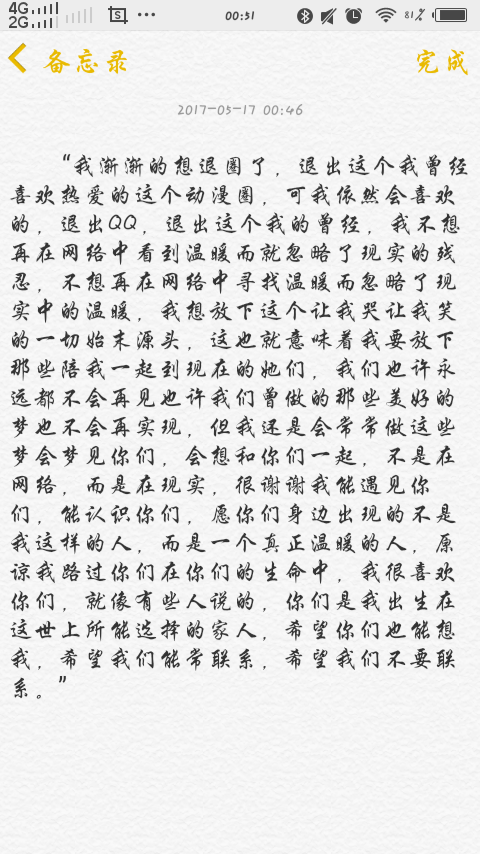 4G 2G S ... 00:51 81%
备忘录 完成
2017-05-17 00:46
“我渐渐的想退圈了，退出这个我曾经
喜欢热爱的这个动漫圈，可我依然会喜欢
的，退出QQ，退出这个我的曾经，我不想
再在网络中看到温暖而就忽略了现实的残
忍，不想再在网络中寻找温暖而忽略了现
实中的温暖，我想放下这个让我哭让我笑
的一切始末源头，这也就意味着我要放下
那些陪我一起到现在的她们，我们也许永
远都不会再见也许我们曾做的那些美好的
梦也不会再实现，但我还是会常常做这些
梦会梦见你们，会想和你们一起，不是在
网络，而是在现实，很谢谢我能遇见你
们，能认识你们，愿你们身边出现的不是
我这样的人，而是一个真正温暖的人，原
谅我路过你们在你们的生命中，我很喜欢
你们，就像有些人说的，你们是我出生在
这世上所能选择的家人，希望你们也能想
我，希望我们能常联系，希望我们不要联
系。”